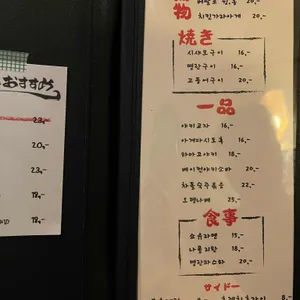 おすすめ
23,-
20,-
23,-
18,-
18,-
物
치킨가라아게 20,-
焼き
시샤모구이 16,-
명란구이 16,-
고등어구이 20,-
一品
야키교자 16,-
아게다시도후 16,-
베이컨야키소바 20,-
차돌숙주볶음 22,-
오뎅나베 25,-
食事
쇼유라멘 15,-
나폴리탄 18,-
명란파스타 20,-
サイドー
8,-